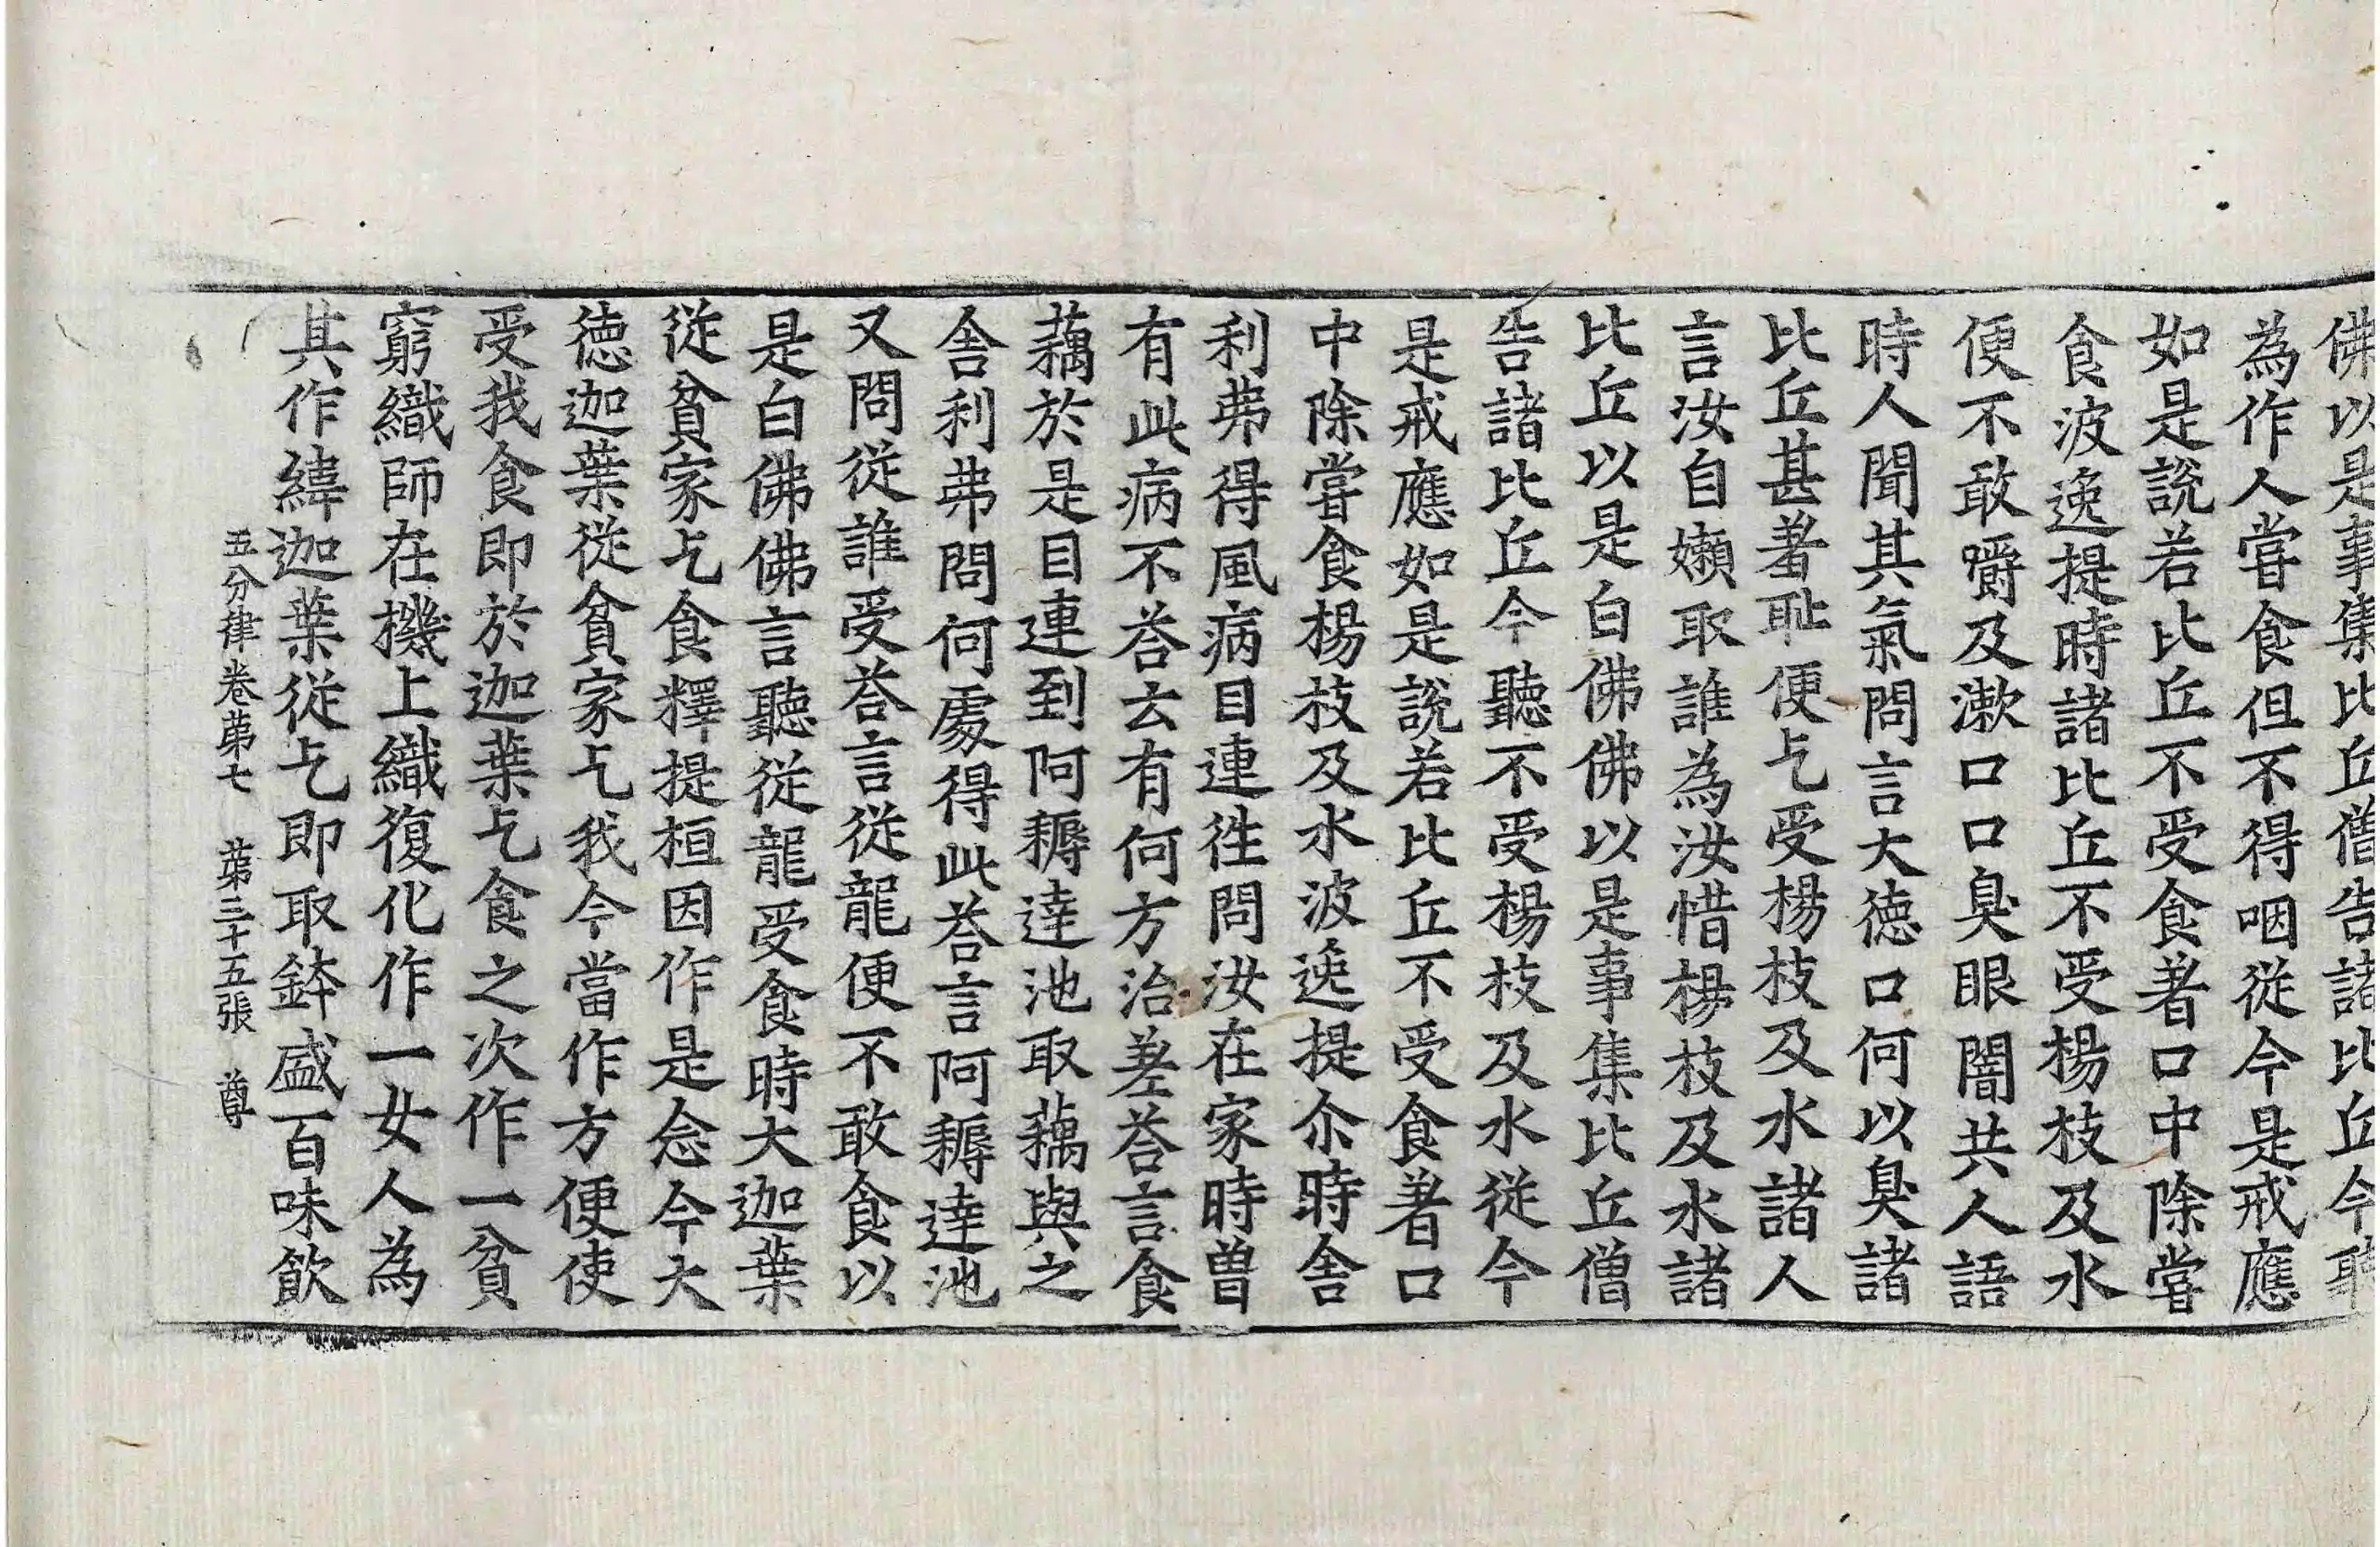 佛以是事集比丘僧告諸比丘今聽
為作人嘗食但不得咽從今是戒應
如是說若比丘不受食著口中除嘗
食波逸提時諸比丘不受楊枝及水
便不敢嚼及漱口口臭眼闇共人語
時人聞其氣問言大德口何以臭諸
比丘甚著耻便乞受楊枝及水諸人
言汝自嬾取誰為汝惜楊枝及水諸
比丘以是白佛佛以是事集比丘僧
告諸比丘今聽不受楊枝及水從今
是戒應如是說若比丘不受食著口
中除嘗食楊枝及水波逸提尒時舍
利弗得風病目連徃問汝在家時曽
有此病不荅云有何方治差荅言食
藕於是目連到阿耨達池取藕與之
舍利弗問何處得此荅言阿耨達池
又問從誰受荅言從龍便不敢食以
是白佛佛言聽從龍受食時大迦葉
從貧家乞食釋提桓因作是念今大
德迦葉從貧家乞我今當作方便使
受我食即於迦葉乞食之次作一貧
窮織師在機上織復化作一女人為
其作緯迦葉從乞即取鉢盛百味飲
五分律卷第七 第三十五張 尊